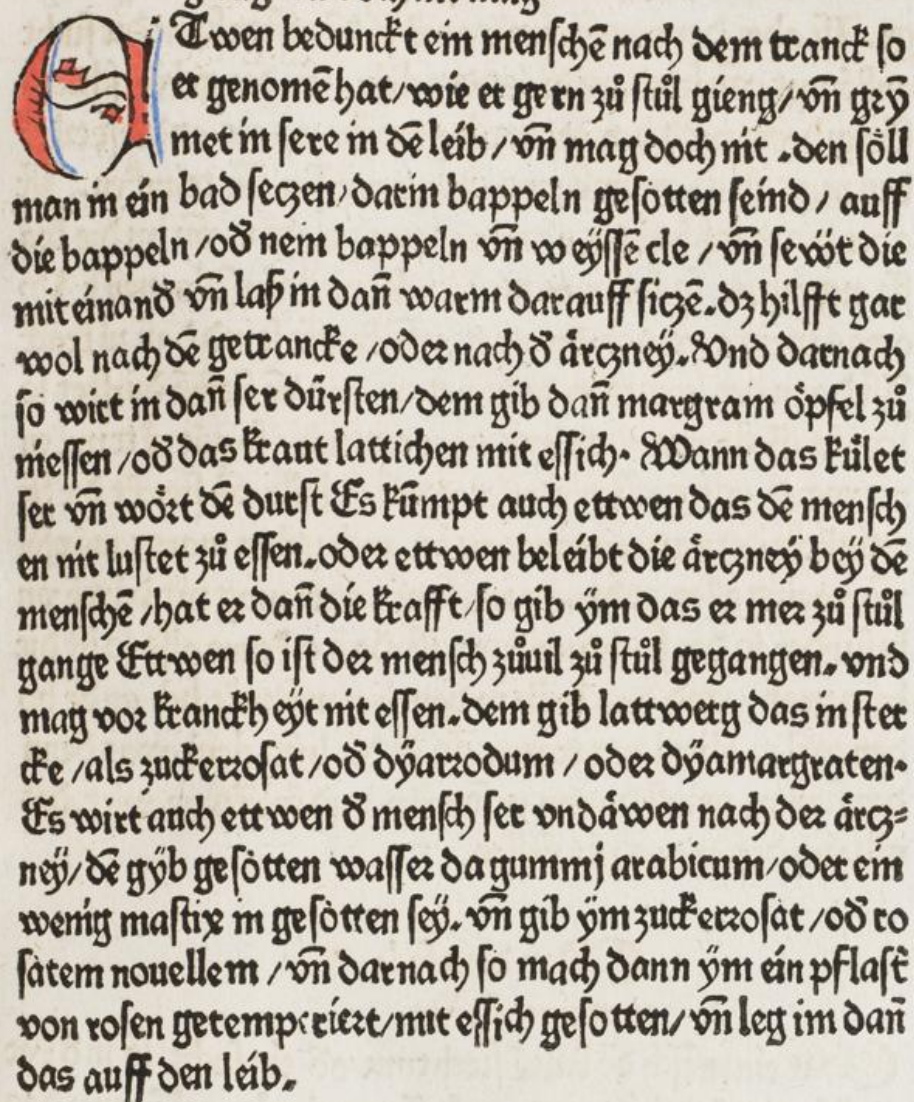 ETwen bedunckt ein menschē nach dem tranck so
er genomē hat/wie er gern zů stůl gieng/vn̄ gry̆
met in sere in dē leib/vn̄ mag doch nit.den soͤll
man in ein bad seczen/darin bappeln gesotten seind/auff
die bappeln/od̕ nem bappeln vn̄ weÿssē cle/vn̄ sewt die
miteinand̕ vn̄ laß in dan̄ warm darauff siczē.dz hilfft gar
wol nach dē getrancke/oder nach d̕ aͤrczneÿ.Vnd darnach
so wirt in dan̄ ser dürsten/dem gib dan̄ margram oͤpfel zů
niessen/od̕ das kraut lattichen mit essich.Wann das kuͤlet
ser vn̄ woͤrt dē durst Es kūmpt auch ettwen das dē mensch
en nit lustet zů essen.oder ettwen beleibt die aͤrczneÿ beÿ dē
menschē/hat er dan̄ die krafft/so gib ÿm das er mer zů stůl
gange Ettwen so ist der mensch zůuil zů stůl gegangen.vnd
mag vor kranckheÿt nit essen.dem gib lattwerg das in ster
cke/als zuckerrosat/od̕ dÿarrodum/oder dÿamargraten.
Es wirt auch ettwen d̕ mensch ser vndaͤwen nach der aͤrcz⸗
neÿ/dē gÿb gesotten wasser da gummj arabicum/oder ein
wenig mastix in gesotten seÿ.vn̄ gib ÿm zuckerrosat/od̕ ro
satem nouellem/vn̄ darnach so mach dann ÿm ein pflast̕
von rosen getemperiert/mit essich gesotten/vn̄ leg im dan̄
das auff den leib.